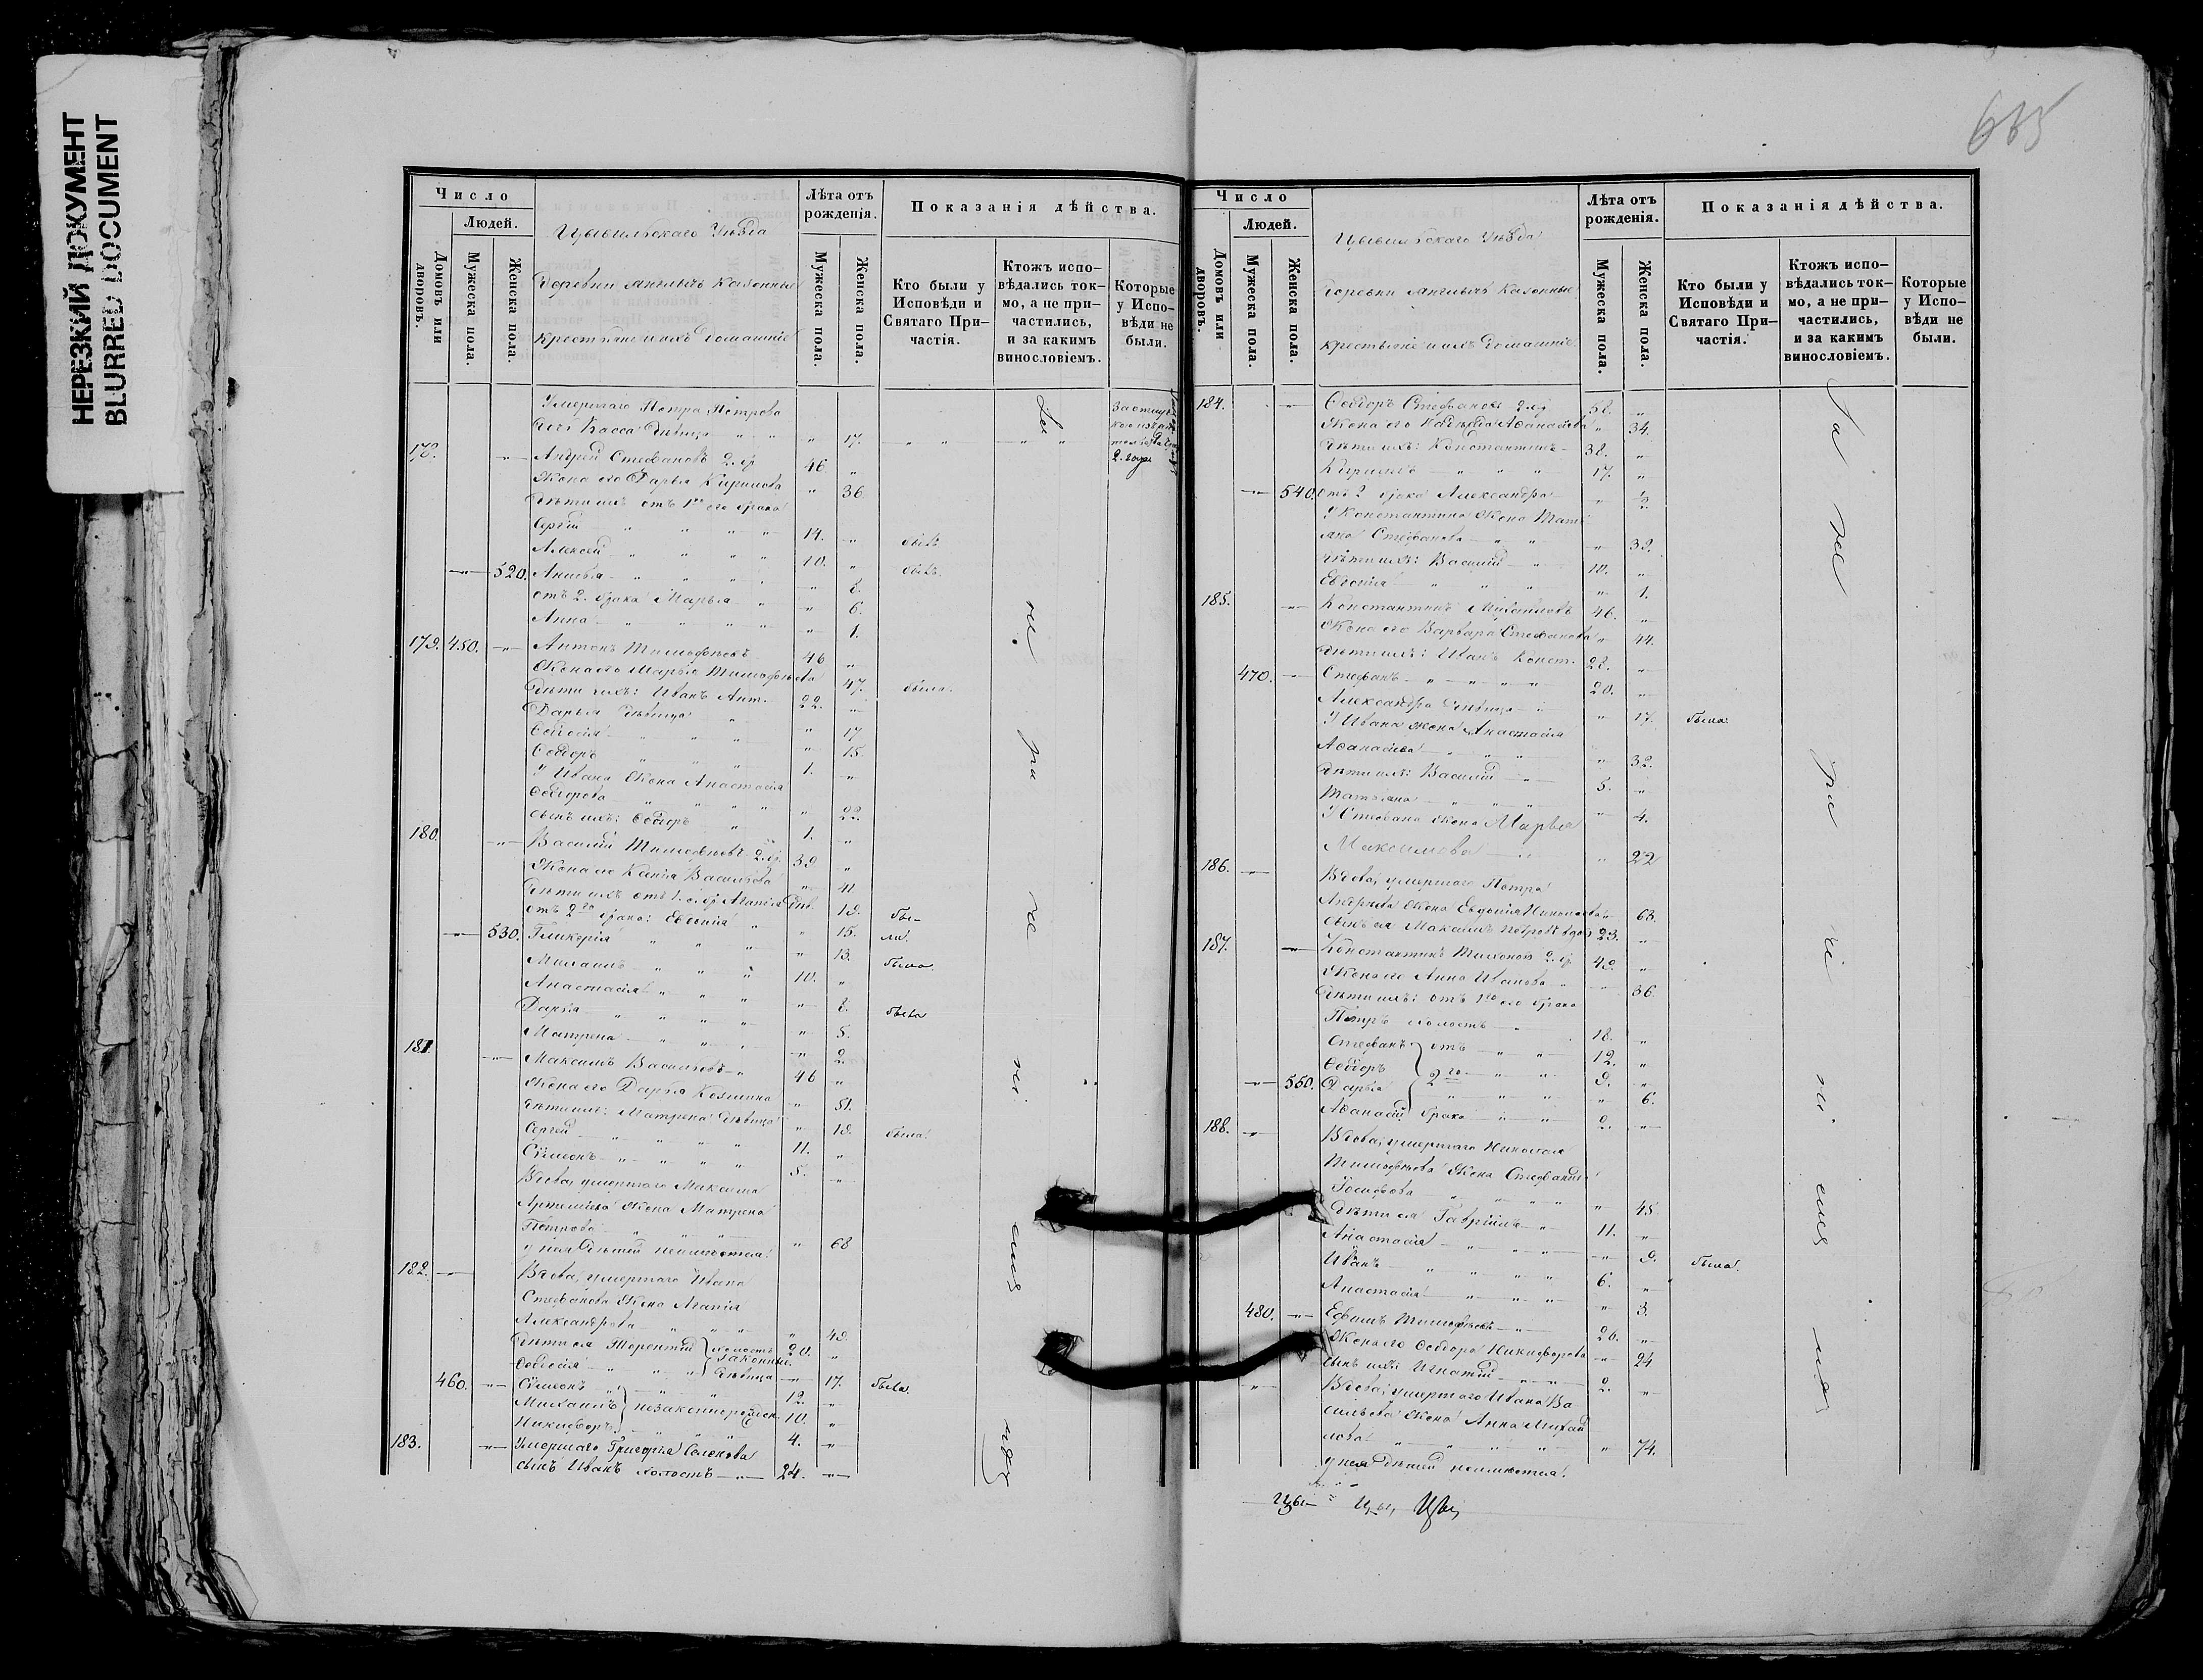 НЕРЕЗКИЙ ДОКУМЕНТ
BLURRED DOCUMENT
Число
Людей.
Домовъ или дворовъ.
Мужеска пола.
Женска пола.
Цывильскаго Уѣзда
Деревни Казенные
крестьяне и ихъ домашніе
Лѣта отъ рожденія.
Мужеска пола.
Женска пола.
Показанія дѣйства.
Кто были у Исповѣди и Святаго При-
частія.
Ктожъ испо-
вѣдались ток-
мо, а не при-
частились,
и за какимъ
винословіемъ.
Которые
у Испо-
вѣди не
были.
Умершаго Петра Петрова
дочь Васса дѣвица " 17.
178. Андрей Стефановъ 2 бр. 46 "
Жена его Дарья Кирилова " 36.
Дѣти ихъ отъ 1го его брака
Сергій 14. " былъ
Алексей 10. " былъ.
520. 8.
отъ 2. брака Марья " 6.
Анна " 1.
179. 450. Антонъ Тимофѣевъ 46 "
Жена его Марья Тимофѣева 47. была.
Дѣти ихъ: Иванъ Ант. 22. "
Дарья дѣвица " 17
Феодосія " 15.
Феодоръ 1. "
У Ивана жена Анастасія
Феодорова " 22.
сынъ ихъ: Феодоръ 1. "
180. Василій Тимофѣевъ 2 бр. 39 "
Жена его Ксенія Васильева " 41
Дѣти ихъ отъ 1. бр. Агапія дѣв. " 19. бы-
отъ 2го брака: Евгенія " 15. ли.
530. Гликерія " 13. была.
Михаилъ 10. "
Анастасія " 8. была
Дарья " 5.
Матрена " 2.
181. Максимъ Васильевъ 46 "
Жена его Дарья Козмина " 51.
Дѣти ихъ: Матрена дѣвица " 19. была.
Сергей 11. "
Сѵмеонъ 5. "
Вдова, умершаго Максима
Артемьева жена Матрена
Петрова " 68
у нея дѣтей неимѣется.
182. Вдова, умершаго Ивана
Стефанова жена Агапія
Александрова " 49.
Дѣти ея Терентій холостъ 20. "
Феодосія законные дѣвица " 17. была.
460. Сѵмеонъ 12. "
Михаилъ незаконнорожден. 10. "
Никифоръ 4. "
183. Умершаго Григорья Семенова
сынъ Иванъ холостъ 24. "
не
ра
че
ні
емъ
Число
Людей.
Домовъ или дворовъ.
Мужеска пола.
Женска пола.
Цывильскаго Уѣзда
Деревни Казенные
крестьяне и ихъ домашніе
Лѣта отъ рожденія.
Мужеска пола.
Женска пола.
Показанія дѣйства.
Кто были у
Исповѣди и
Святаго При-
частія.
Ктожъ испо-
вѣдались ток-
мо, а не при-
частились,
и за какимъ
винословіемъ.
Которые
у Испо-
вѣди не
были.
184. Феодоръ Стефановъ 2 бр. 58. "
Жена его Афанасіева " 34.
Дѣти ихъ: Константинъ 38. "
Кирилъ 17. "
540. отъ 2 брака Александра " ½
У Константина жена Тать
яна Стефанова " 39.
Дѣти ихъ: Василій 10. "
Евгенія " 1.
185. Константинъ Михайловъ 46. "
Жена его Варвара Стефанова " 44.
Дѣти ихъ: Иванъ Конст. 28. "
470. Стефанъ 20. "
Александра дѣвица " 17. была.
У Ивана жена Анастасія
Афанасіева " 32.
Дѣти ихъ: Василій 5. "
Татьяна " 4.
У Стефана жена Марья
Максимова " 22
186. Вдова, умершаго Петра
Андреева жена Евдокія Николаева " 63.
сынъ ея Максимъ Петровъ вдов. 23. "
187. Константинъ Тихоновъ 2. бр. 49. "
Жена его Анна Иванова " 36.
Дѣти ихъ: отъ 1го его брака
Петръ холостъ 18. "
Стефанъ отъ 12. "
Феодоръ 2го 9. "
550. Дарья " 6.
Афанасій брака 2. "
188. Вдова, умершаго Николая
Тимофѣева жена Стефанида
Іосифова " 45.
Дѣти ея Гавріилъ 11. "
Анастасія " 9. была.
Иванъ 6. "
Анастасія " 3.
480. Ефимъ Тимофѣевъ 20. "
Жена его Феодора Никифорова " 24
сынъ ихъ Игнатій 2. "
Вдова, умершаго Ивана Ва
сильева жена Анна Михай
лова " 74.
у нея дѣтей неимѣется.
За
не
ра
че
ні
емъ